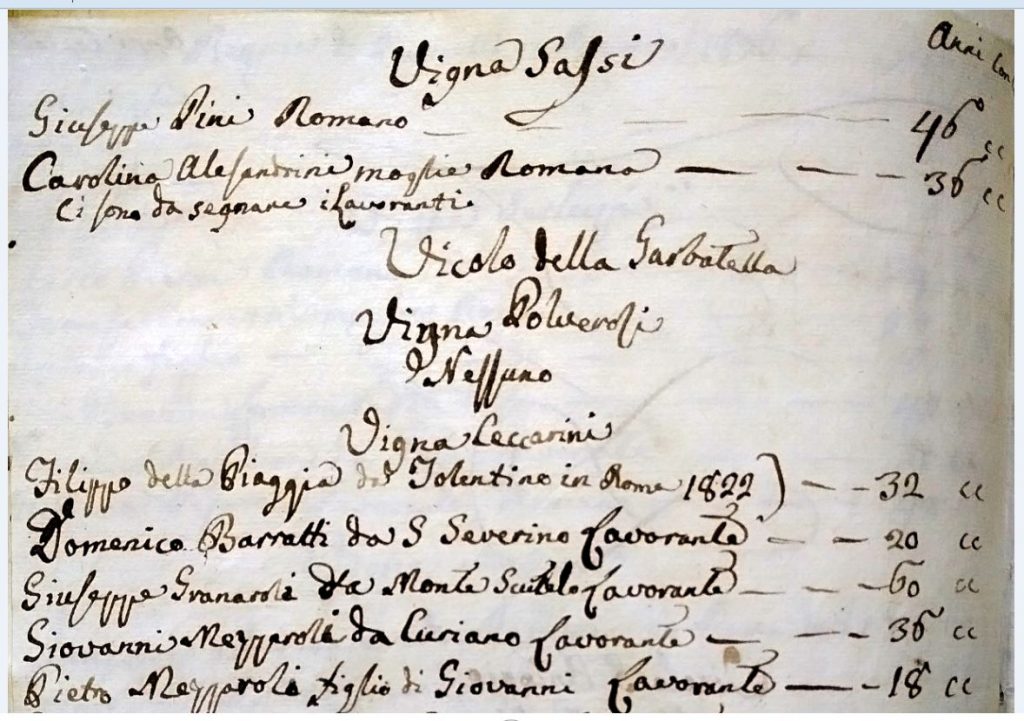 Anni
Vigna Sassi
Giuseppe Pini Romano — — — 46 cc
Carolina Alesandrini moglie Romana — — — 36 cc
Ci sono da segnare i Lavoranti
Vicolo della Garbatella
Vigna Polverosi
Nessuno
Vigna Ceccarini
Filippo della Piaggia da Tolentino in Roma 1822) — — 32 cc
Domenico Barratti da S Severino Lavorante — — 20 cc
Giuseppe Granaroli da Monte Lavorante — — — 60 cc
Giovanni Mezzaroli da Luriano Lavorante — — — 36 cc
Pietro Mezzaroli figlio di Giovanni Lavorante — — 18 cc